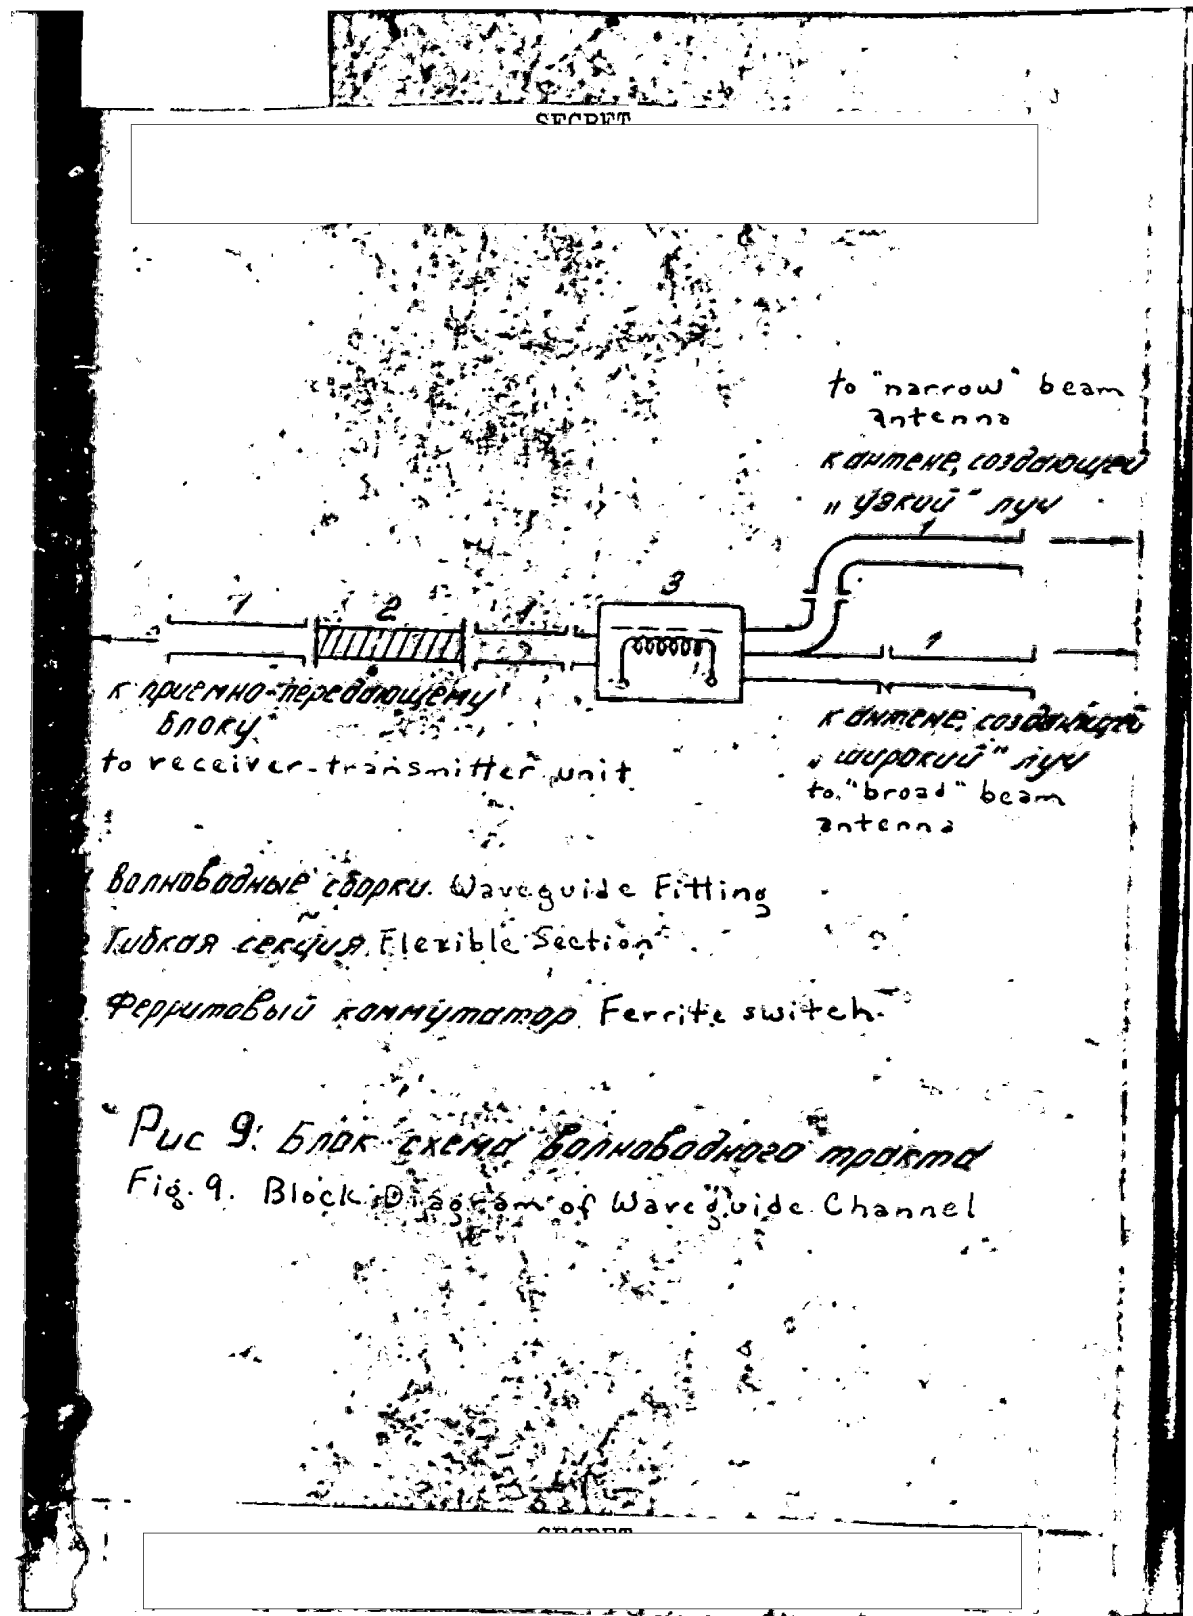 SECRET
to "narrow" beam
antenna
к антене, создающей
„узкий" луч
1
3
1 2 1
1
к приемно-передающему
блоку
to receiver-transmitter unit
к антене, создающей
„широкий" луч
to "broad" beam
antenna
Волноводные сборки. Waveguide Fitting
Гибкая секция. Flexible Section
Ферритовый коммутатор. Ferrite switch
Рис 9: Блок схема волноводного тракта
Fig. 9. Block Diagram of Waveguide Channel
SECRET